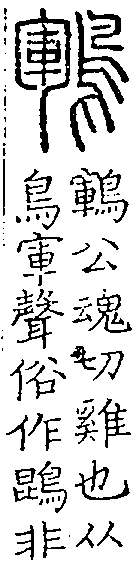 鶤
鶤公魂切雞也从
鳥軍聲俗作鵾非